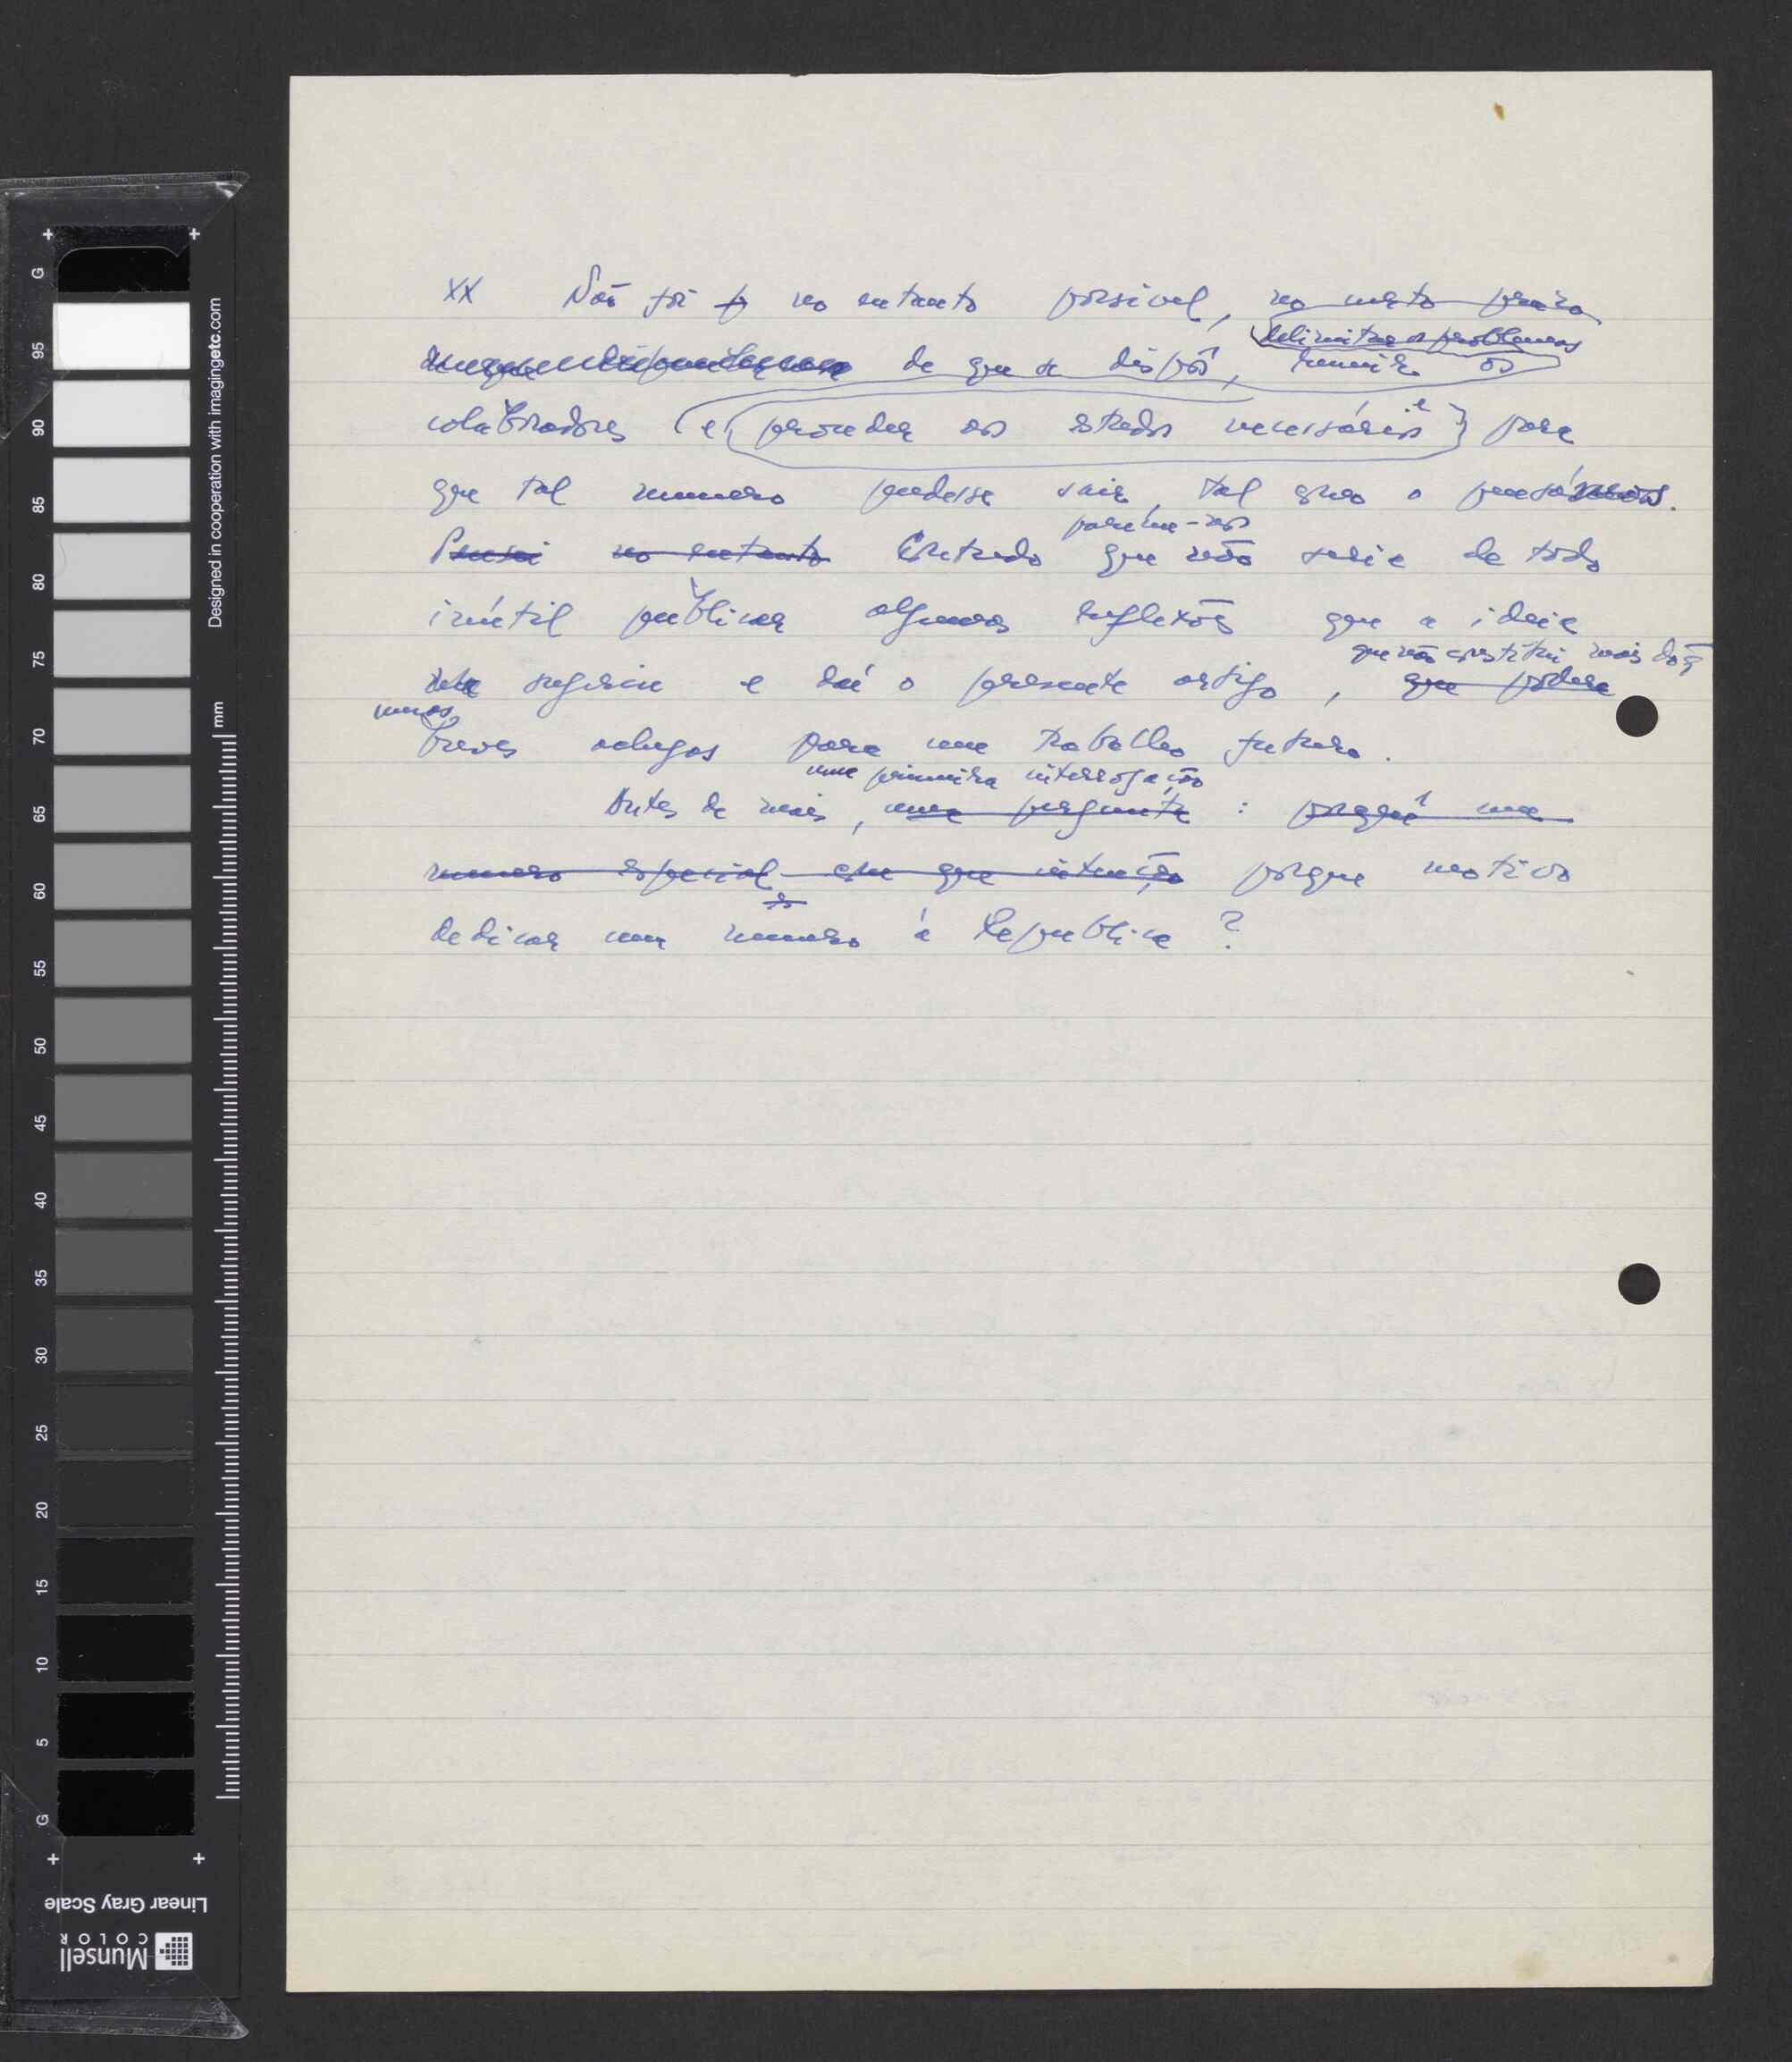 XX Não foi p no entanto possivel, no curto prazo
delimitar os problemas
de que se dispôs, reunir os
colaboradores (e (proceder aos estudos necessários e) para
que tal numero pudesse sair, tal como o pensá
pareceu-nos
Pensei no entanto Contudo que não seria de todo
inútil publicar algumas reflexões que a ideia
que não constitui mais do q
me sugeriu e daí o presente artigo, que podera
unos
breves achegas para um trabalho futuro.
uma primeira interrogação
Antes de mais, uma pergunta : porquê um
numero especial com que intenção porque motivo
dedicar um numero à Republica ?
G 95 90 85 80 75 70 65 60 55 50 45 40 35 30 25 20 15 10 5 G
Designed in cooperation with imagingetc.com
mm
Linear Gray Scale
Munsell
COLOR